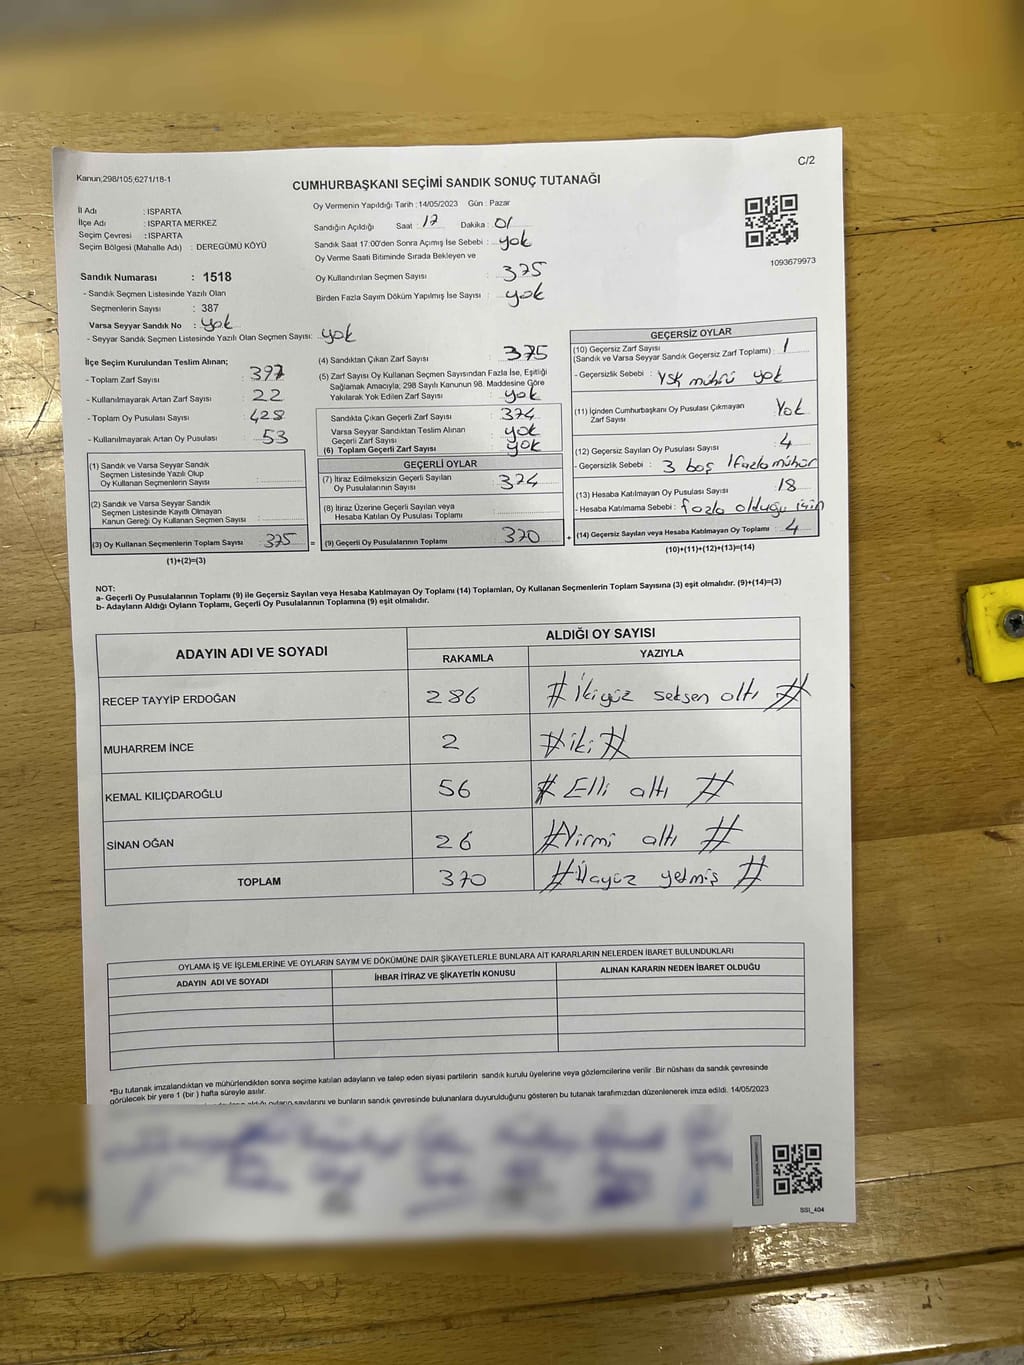 Kanun;298/105,6271/18-1
C/2
CUMHURBAŞKANI SEÇİMİ SANDIK SONUÇ TUTANAĞI
İl Adı : ISPARTA
İlçe Adı : ISPARTA MERKEZ
Seçim Çevresi : ISPARTA
Seçim Bölgesi (Mahalle Adı) : DEREGÜMÜ KÖYÜ
Oy Vermenin Yapıldığı Tarih : 14/05/2023 Gün : Pazar
Sandığın Açıldığı Saat : 17 Dakika : 01
Sandık Saat 17:00'den Sonra Açımış İse Sebebi : yok
Oy Verme Saati Bitiminde Sırada Bekleyen ve
Oy Kullandırılan Seçmen Sayısı : 375
Birden Fazla Sayım Döküm Yapılmış İse Sayısı : yok
1093679973
Sandık Numarası : 1518
- Sandık Seçmen Listesinde Yazılı Olan
Seçmenlerin Sayısı : 387
Varsa Seyyar Sandık No : yok
- Seyyar Sandık Seçmen Listesinde Yazılı Olan Seçmen Sayısı: yok
İlçe Seçim Kurulundan Teslim Alınan;
- Toplam Zarf Sayısı : 397
- Kullanılmayarak Artan Zarf Sayısı : 22
- Toplam Oy Pusulası Sayısı : 428
- Kullanılmayarak Artan Oy Pusulası : 53
(1) Sandık ve Varsa Seyyar Sandık
Seçmen Listesinde Yazılı Olup
Oy Kullanan Seçmenlerin Sayısı :
(2) Sandık ve Varsa Seyyar Sandık
Seçmen Listesinde Kayıtlı Olmayan
Kanun Gereği Oy Kullanan Seçmen Sayısı :
(3) Oy Kullanan Seçmenlerin Toplam Sayısı 375 =
(1)+(2)=(3)
(4) Sandıktan Çıkan Zarf Sayısı : 375
(5) Zarf Sayısı Oy Kullanan Seçmen Sayısından Fazla İse, Eşitliği
Sağlamak Amacıyla; 298 Sayılı Kanunun 98. Maddesine Göre
Yakılarak Yok Edilen Zarf Sayısı : yok
Sandıkta Çıkan Geçerli Zarf Sayısı : 374
Varsa Seyyar Sandıktan Teslim Alınan
Geçerli Zarf Sayısı : yok
(6) Toplam Geçerli Zarf Sayısı : yok
GEÇERLİ OYLAR
(7) İtiraz Edilmeksizin Geçerli Sayılan
Oy Pusulalarının Sayısı : 374
(8) İtiraz Üzerine Geçerli Sayılan veya
Hesaba Katılan Oy Pusulası Toplamı :
(9) Geçerli Oy Pusulalarının Toplamı 370 +
GEÇERSİZ OYLAR
(10) Geçersiz Zarf Sayısı
(Sandık ve Varsa Seyyar Sandık Geçersiz Zarf Toplamı) : 1
- Geçersizlik Sebebi : YSK mührü yok
(11) İçinden Cumhurbaşkanı Oy Pusulası Çıkmayan
Zarf Sayısı : Yok
(12) Geçersiz Sayılan Oy Pusulası Sayısı : 4
- Geçersizlik Sebebi : 3 boş 1fazla mühür
(13) Hesaba Katılmayan Oy Pusulası Sayısı : 18
- Hesaba Katılmama Sebebi : fazla olduğu için
(14) Geçersiz Sayılan veya Hesaba Katılmayan Oy Toplamı : 4
(10)+(11)+(12)+(13)=(14)
NOT:
a- Geçerli Oy Pusulalarının Toplamı (9) ile Geçersiz Sayılan veya Hesaba Katılmayan Oy Toplamı (14) Toplamları, Oy Kullanan Seçmenlerin Toplam Sayısına (3) eşit olmalıdır. (9)+(14)=(3)
b- Adayların Aldığı Oyların Toplamı, Geçerli Oy Pusulalarının Toplamına (9) eşit olmalıdır.
ADAYIN ADI VE SOYADI
ALDIĞI OY SAYISI
RAKAMLA YAZIYLA
RECEP TAYYİP ERDOĞAN 286 # İkiyüz seksen altı #
MUHARREM İNCE 2 # iki #
KEMAL KILIÇDAROĞLU 56 # Elli altı #
SİNAN OĞAN 26 # Yirmi altı #
TOPLAM 370 # Üçyüz yetmiş #
OYLAMA İŞ VE İŞLEMLERİNE VE OYLARIN SAYIM VE DÖKÜMÜNE DAİR ŞİKAYETLERLE BUNLARA AİT KARARLARIN NELERDEN İBARET BULUNDUKLARI
ADAYIN ADI VE SOYADI İHBAR İTİRAZ VE ŞİKAYETİN KONUSU ALINAN KARARIN NEDEN İBARET OLDUĞU
*Bu tutanak imzalandıktan ve mühürlendikten sonra seçime katılan adayların ve talep eden siyasi partilerin sandık kurulu üyelerine veya gözlemcilerine verilir. Bir nüshası da sandık çevresinde
görülecek bir yere 1 (bir ) hafta süreyle asılır.
oyların sayılarını ve bunların sandık çevresinde bulunanlara duyurulduğunu gösteren bu tutanak tarafımızdan düzenlenerek imza edildi. 14/05/2023
SSI_404